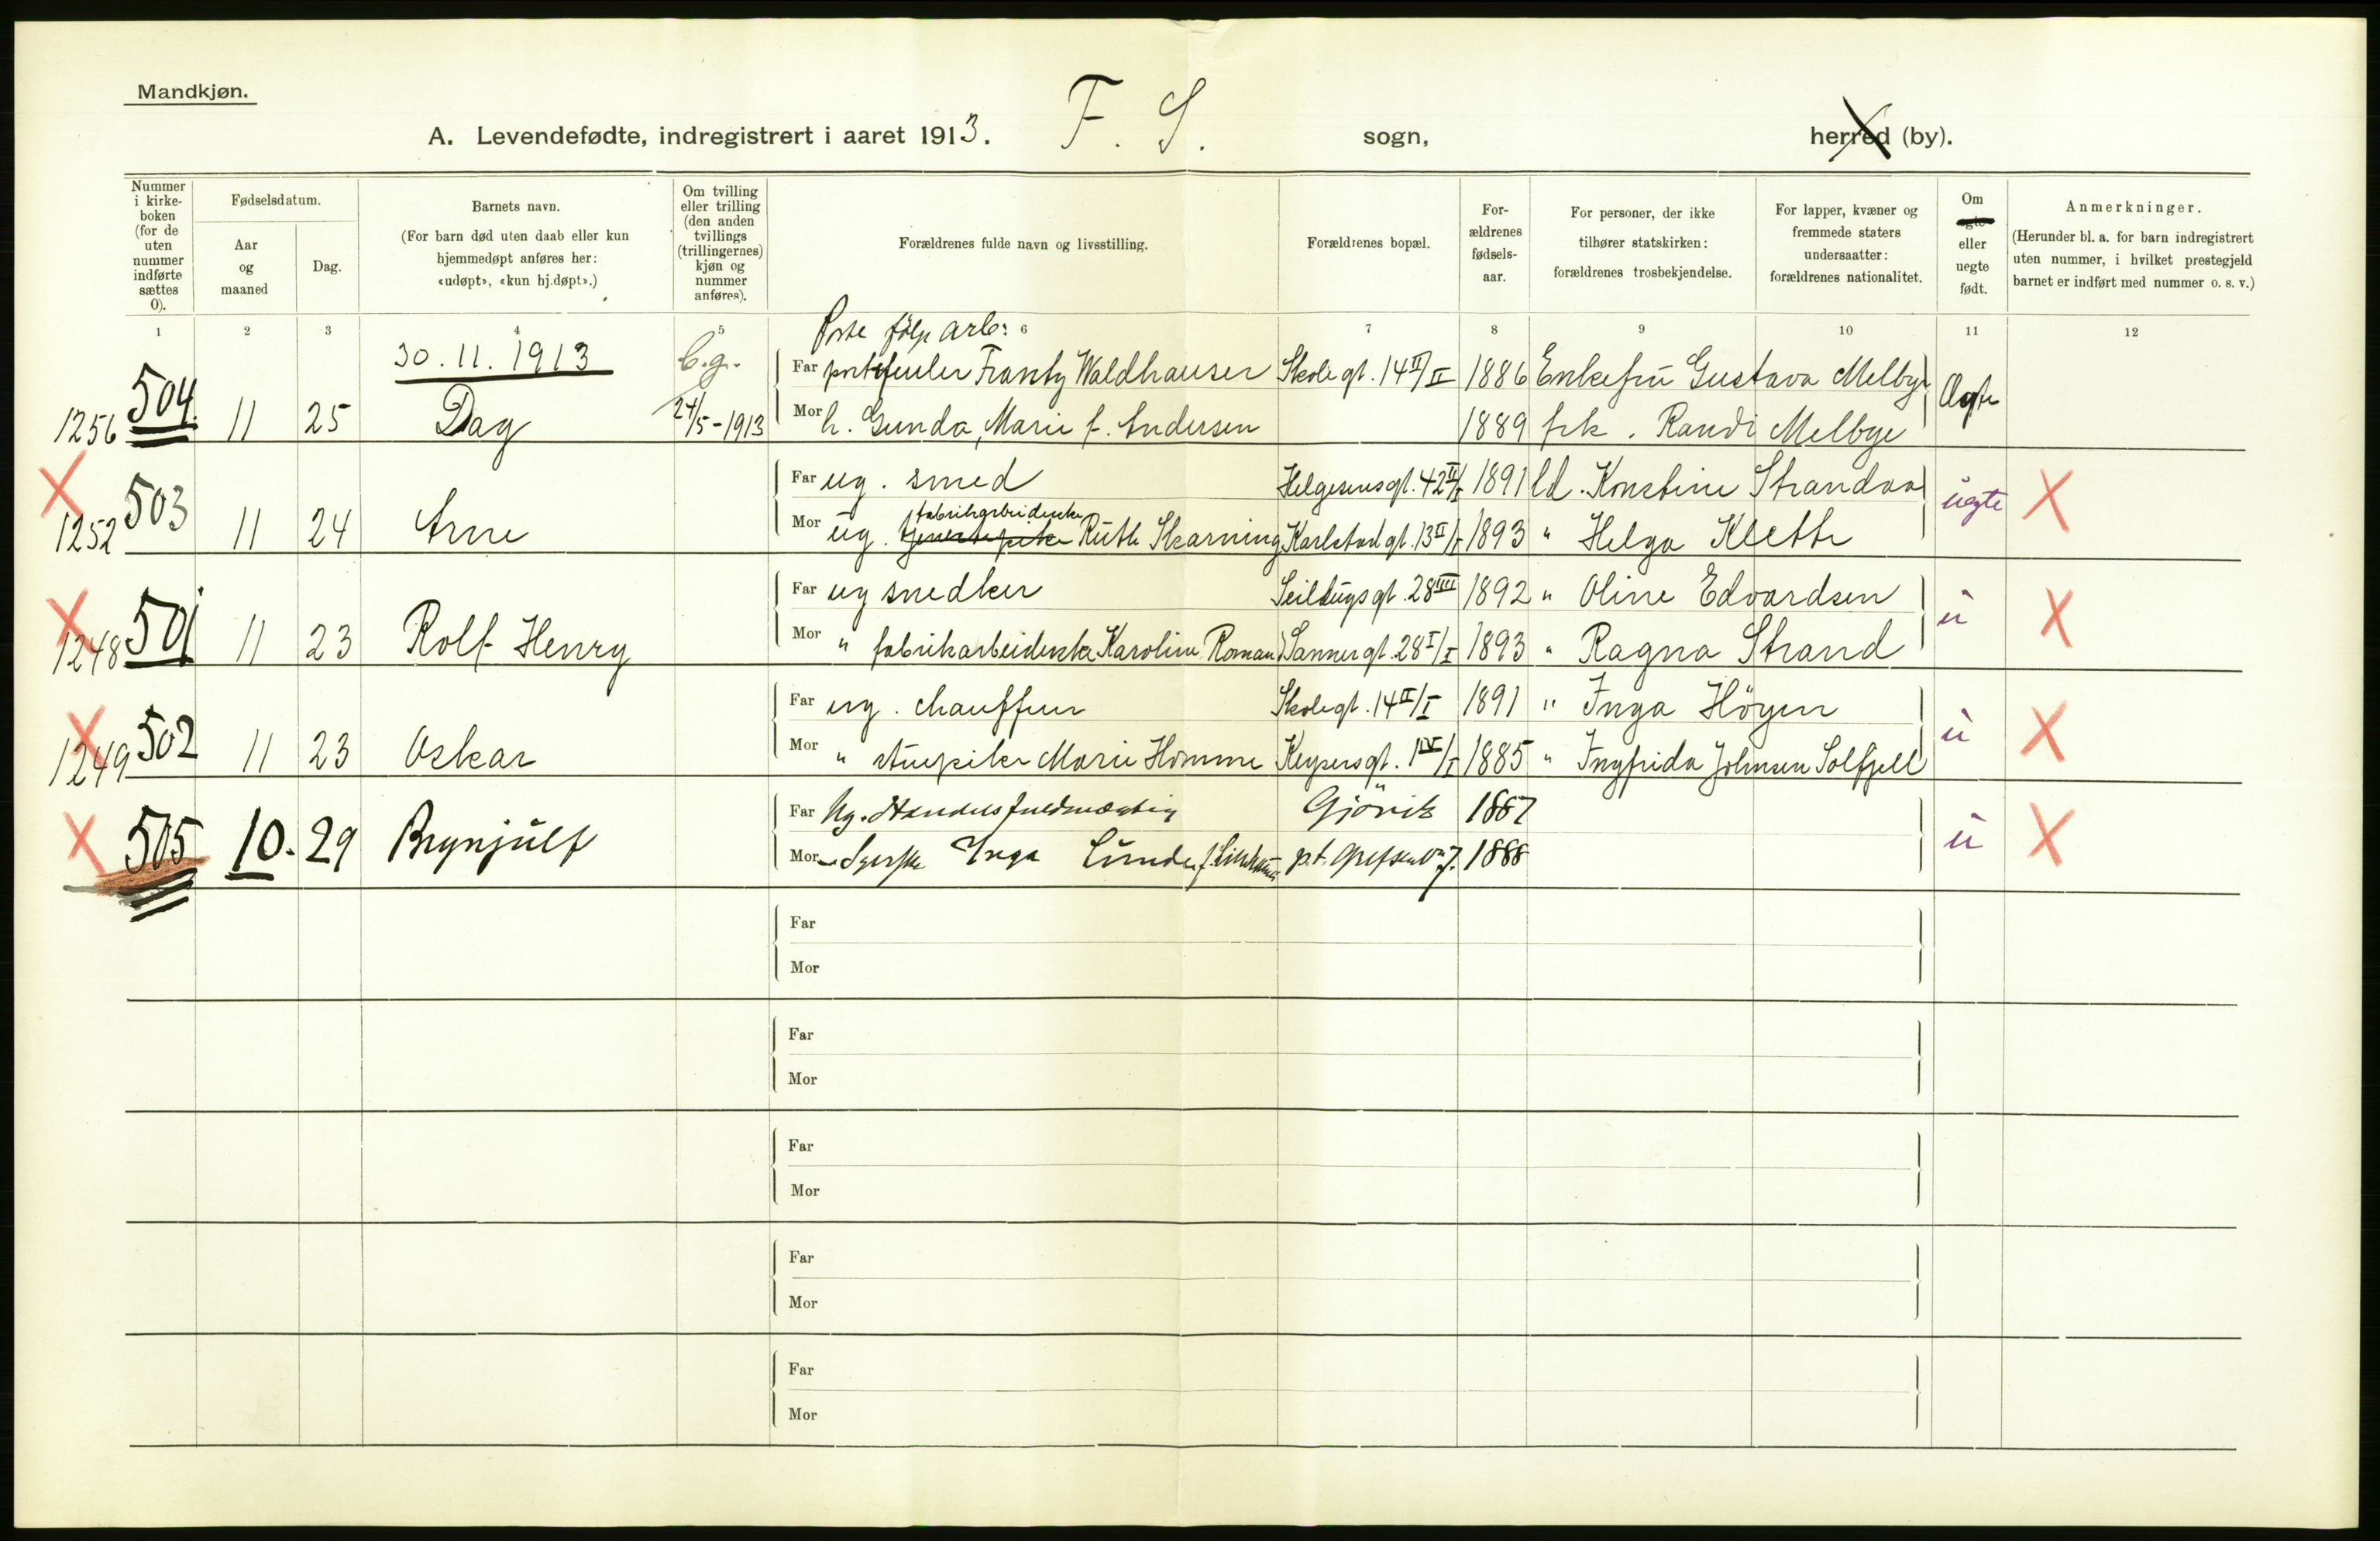 Mandkjøn.
A. Levendefødte, indregistrert i aaret 1913. F. S. sogn, herred (by).
Nummer i kirkeboken (for de uten nummer indførte sættes 0).
Fødselsdatum.
Aar og maaned
Dag.
Barnets navn.
(For barn død uten daab eller kun hjemmedøpt anføres her: «udøpt», «kun hj.døpt».)
Om tvilling eller trilling (den anden tvillings (trillingernes) kjøn og nummer anføres).
Forældrenes fulde navn og livsstilling.
Forældrenes bopæl.
Forældrenes fødselsaar.
For personer, der ikke tilhører statskirken: forældrenes trosbekjendelse.
For lapper, kvæner og fremmede staters undersaatter: forældrenes nationalitet.
Om egte eller uegte født.
Anmerkninger.
(Herunder bl. a. for barn indregistrert uten nummer, i hvilket prestegjeld barnet er indført med nummer o. s. v.)
1 2 3 4 5 6 7 8 9 10 11 12
30.11.1913 b.g. arb:
Far Waldhauser Skolegt. 14 II/II 1886 Enkefru Gustava Melbye
1256 504. 11 25 Dag 24/5-1913 Mor h. Gunda, Marie f. Andersen 1889 frk. Randi Melbye Ægte
X Far ug. smed Helgesensgt. 42 II/I 1891 ld. Konstine Strandaa
1252 503 11 24 Arne Mor ug. fabrikarbeiderske Ruth Skarning Karlstadgt. 13 II/I 1893 " Helga Klette uegte X
X Far ug snedker Seildugsgt. 28 IIII 1892 " Oline Edvardsen
1248 501 11 23 Rolf Henry Mor " fabrikarbeiderske Karoline Roman Sannergt. 28 I/I 1893 " Ragna Strand u X
X Far ug. chauffeur Skolegt. 14 II/I 1891 " Inga Höyen
1249 502 11 23 Oskar Mor " stuepike Marie Homme Keysersgt. 1 IV/I 1885 " Ingfrida Johnsen Solfjell u X
Far Ug. Handelsfuldmægtig Gjövik 1887
X 505 10. 29 Brynjulf Mor " Inga Lunde p.t. Grefsenv. 7. 1888 u X
Far
Mor
Far
Mor
Far
Mor
Far
Mor
Far
Mor